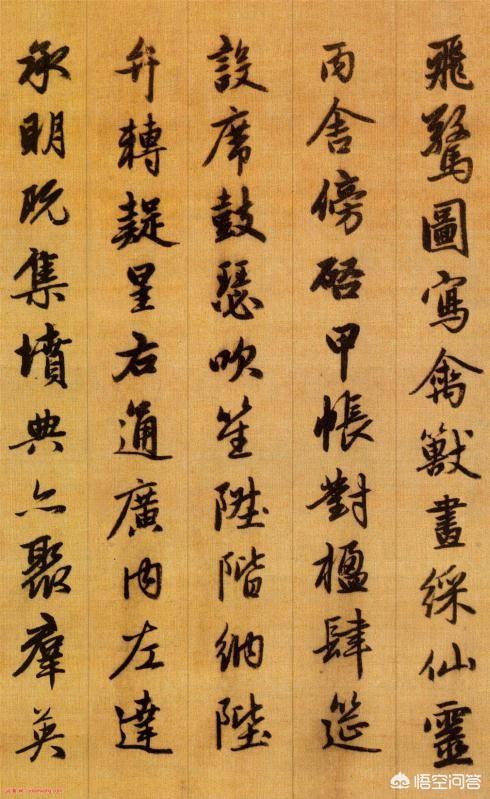 飛驚圖寫禽獸畫綵仙靈
丙舍傍啓甲帳對楹肆筵
設席鼓瑟吹笙陞階納陛
弁轉疑星右通廣内左達
承明既集墳典亦聚羣英
悟空问答